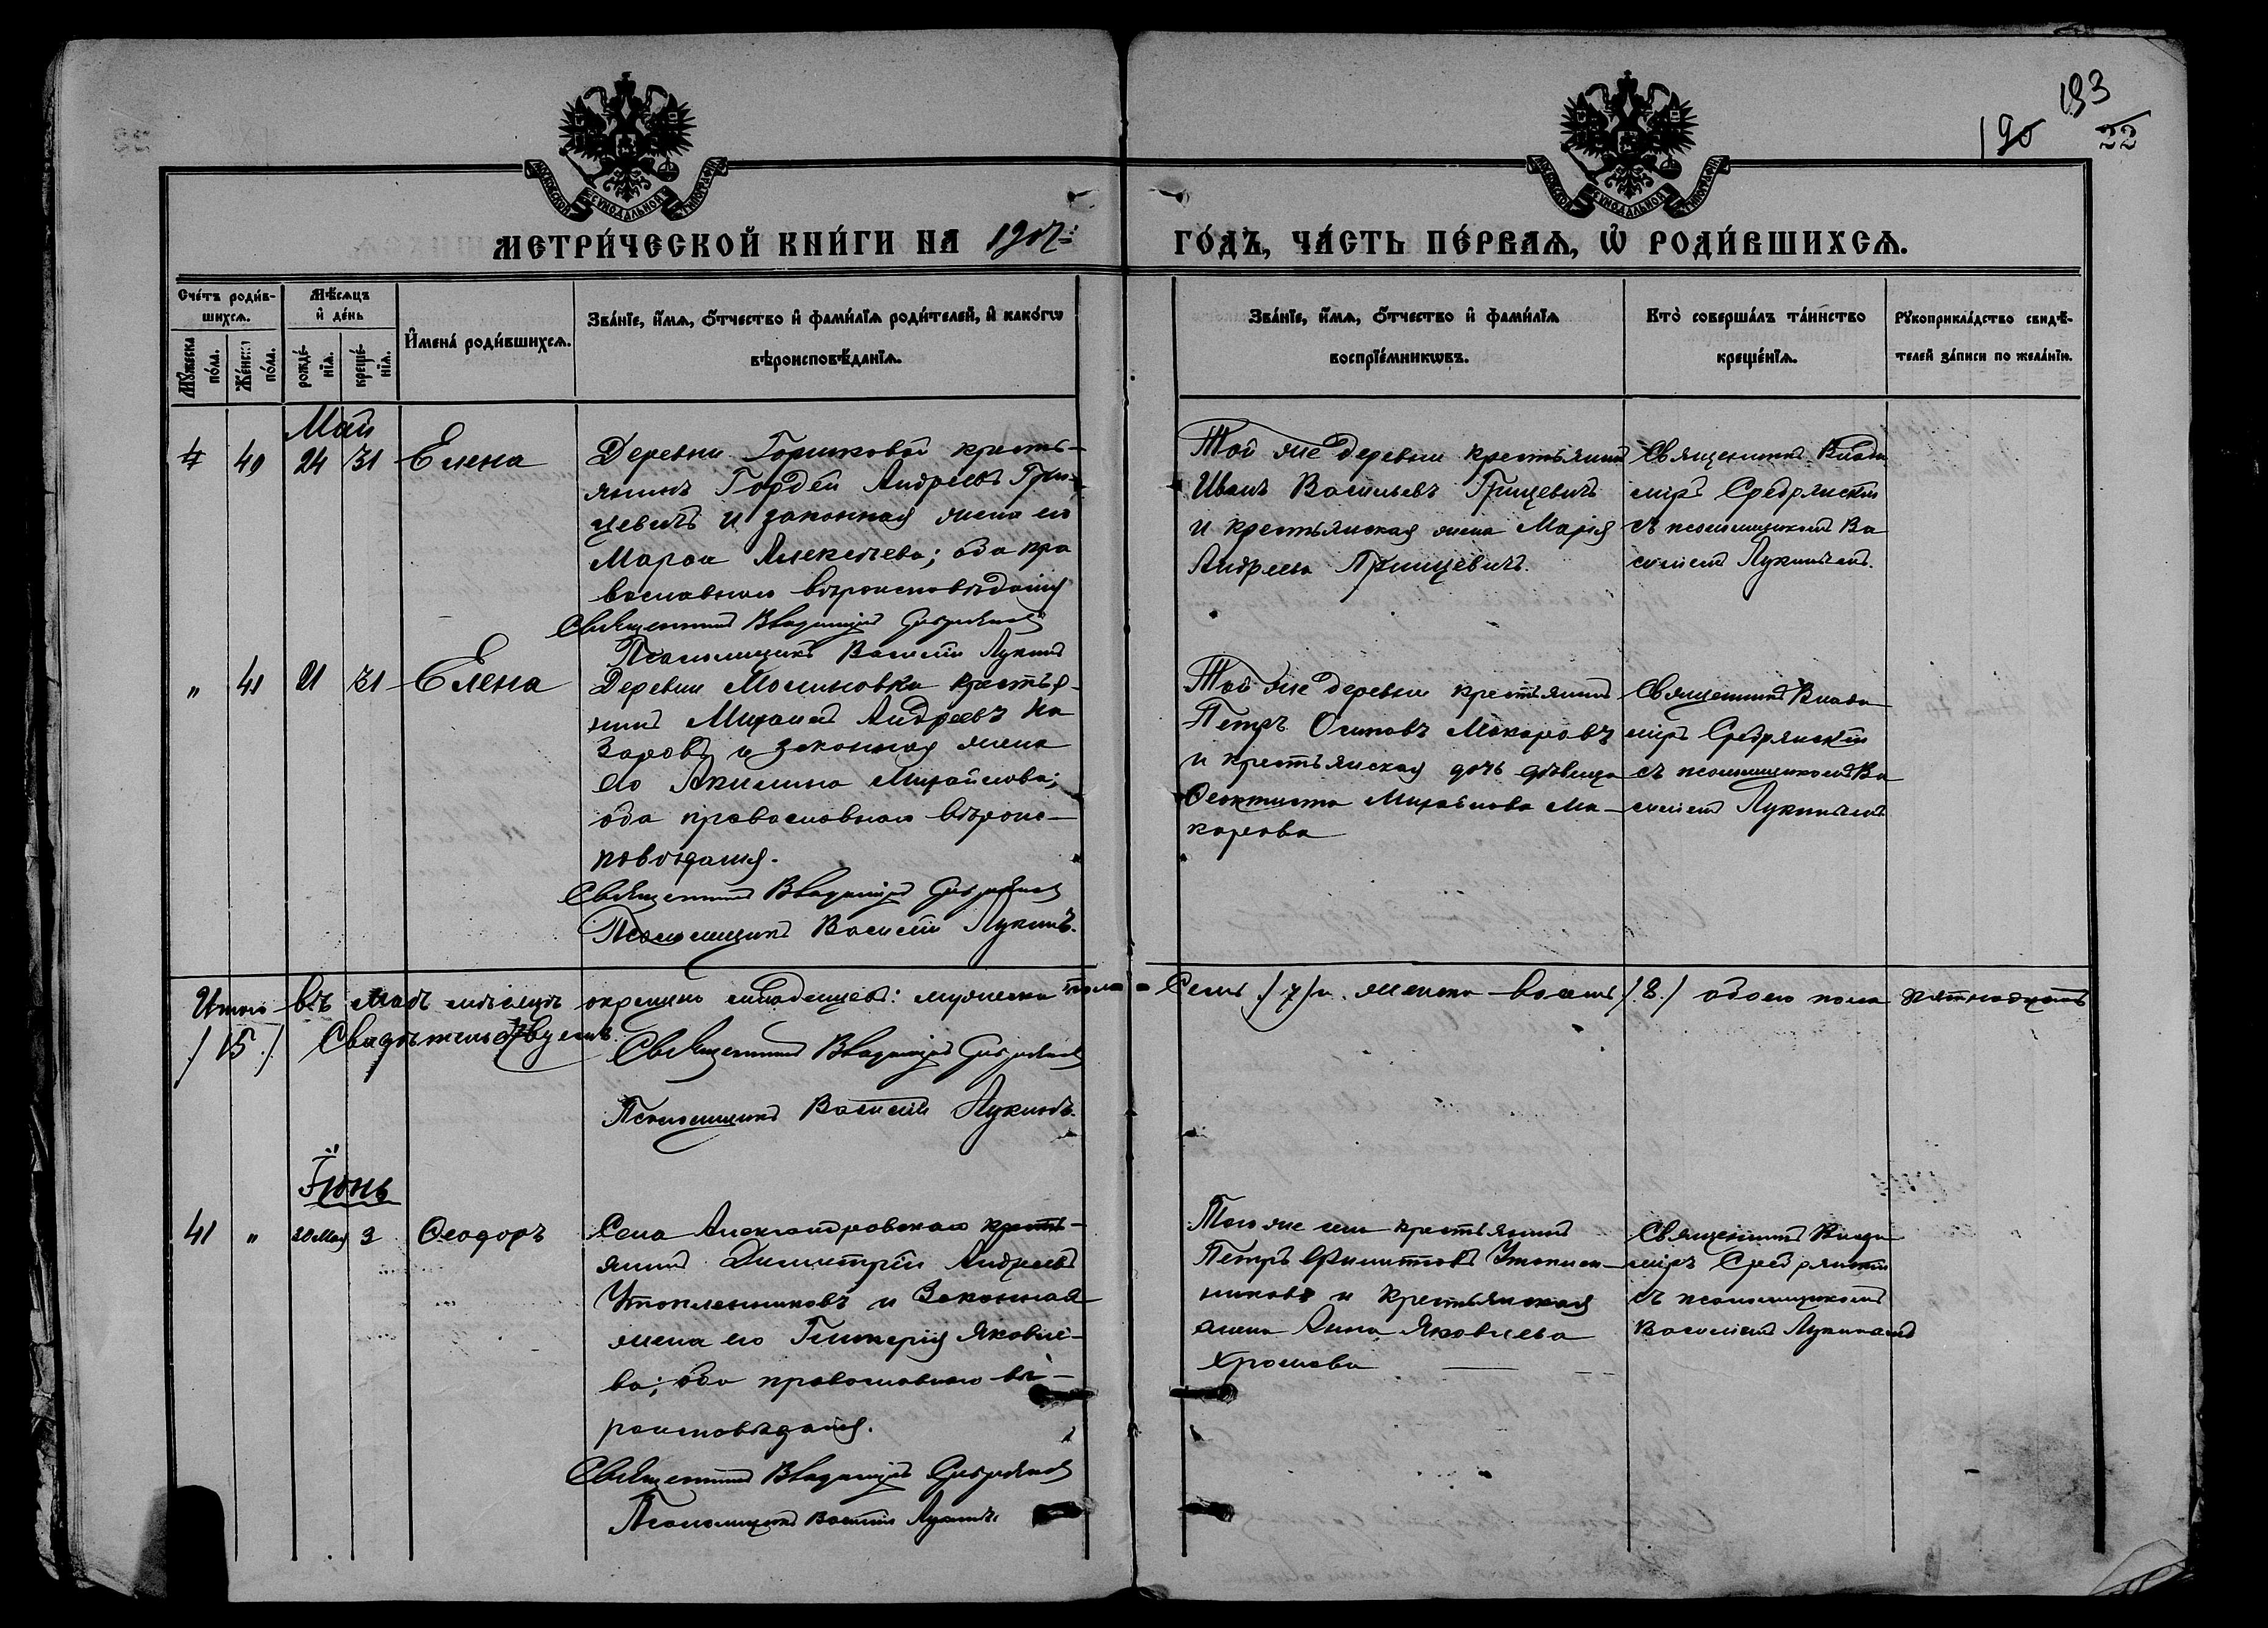 193
190
22
МОСКОВСКОЙ СѴНОДАЛЬНОЙ ТИПОГРАФІИ
МОСКОВСКОЙ СѴНОДАЛЬНОЙ ТИПОГРАФІИ
МЕТРИ́ЧЕСКОЙ КНИ́ГИ НА 1907
ГО́ДЪ, ЧА́СТЬ ПЕ́РВАѦ, Ѡ҆ РОДИ́ВШИХСѦ.
Сче́тъ роди́в-
шихсѧ.
Мꙋ́жеска по́ла.
Же́нска по́ла.
Мѣ́сѧцъ
и҆ де́нь
рожде́-
нїѧ.
креще́-
нїѧ.
И҆мена̀ роди́вшихсѧ.
Зва́нїе, и҆́мѧ, ѻ҆́тчество и҆ фами́лїѧ роди́телей, и҆ како́гѡ
вѣроисповѣ́данїѧ.
Зва́нїе, и҆́мѧ, ѻ҆́тчество и҆ фами́лїѧ
воспрїе́мникѡвъ.
Кто̀ соверша́лъ та́инство
креще́нїѧ.
Рꙋкоприкла́дство свидѣ́-
телей за́писи по жела́нїю.
Май
40 24 31 Елена
Деревни Горшковой кресть-
янинъ Гордей Андреевъ Гри-
цевичъ и законная жена его
Марѳа Алексѣева; оба пра
вославнаго вѣроисповѣданія
Священникъ Владиміръ Сребрянскій
Псаломщикъ Василій Лукинъ
Той же деревни крестьянинъ
Иванъ Васильевъ Грицевичъ
и крестьянская жена Марія
Андреева Грицевичъ.
Священникъ Влади
міръ Сребрянскій
съ псаломщикомъ Ва
силіемъ Лукинымъ.
„ 41 21 31 Елена
Деревни Малиновки крестья-
нинъ Михаилъ Андреевъ На
заровъ и законная жена
его Акилина Михайлова;
оба православнаго вѣроис-
повѣданія.
Священникъ Владиміръ Сребрянскій
Псаломщикъ Василій Лукинъ.
Той же деревни крестьянинъ
Петръ Осиповъ Макаровъ
и крестьянская дочь дѣвица
Ѳеоктиста Михайлова Ма-
карова
Священникъ Влади
міръ Сребрянскій
съ псаломщикомъ Ва
силіемъ Лукинымъ
Итого въ Маѣ мѣсяцѣ окрещено младенцевъ: мужеска пола - Семь /7/ и женска - восемь /8./ обоего пола пятнадцать
/15./ Свидѣтельствуемъ
Священникъ Владиміръ Сребрянскій
Псаломщикъ Василій Лукинъ.
Іюнь
41 „ 20 Мая 3 Ѳеодоръ
Села Александровскаго кресть-
янинъ Димитрій Андреевъ
Утопленниковъ и Законная
жена его Гликерія Яковле-
ва; оба православнаго вѣ-
роисповѣданія.
Священникъ Владиміръ Сребрянскій
Псаломщикъ Василій Лукинъ.
Того же села крестьянинъ
Петръ Филипповъ Утоплен-
никовъ и крестьянская
жена Анна Яковлева
Хромова
Священникъ Влади
міръ Сребрянскій
съ псаломщикомъ
Василіемъ Лукинымъ